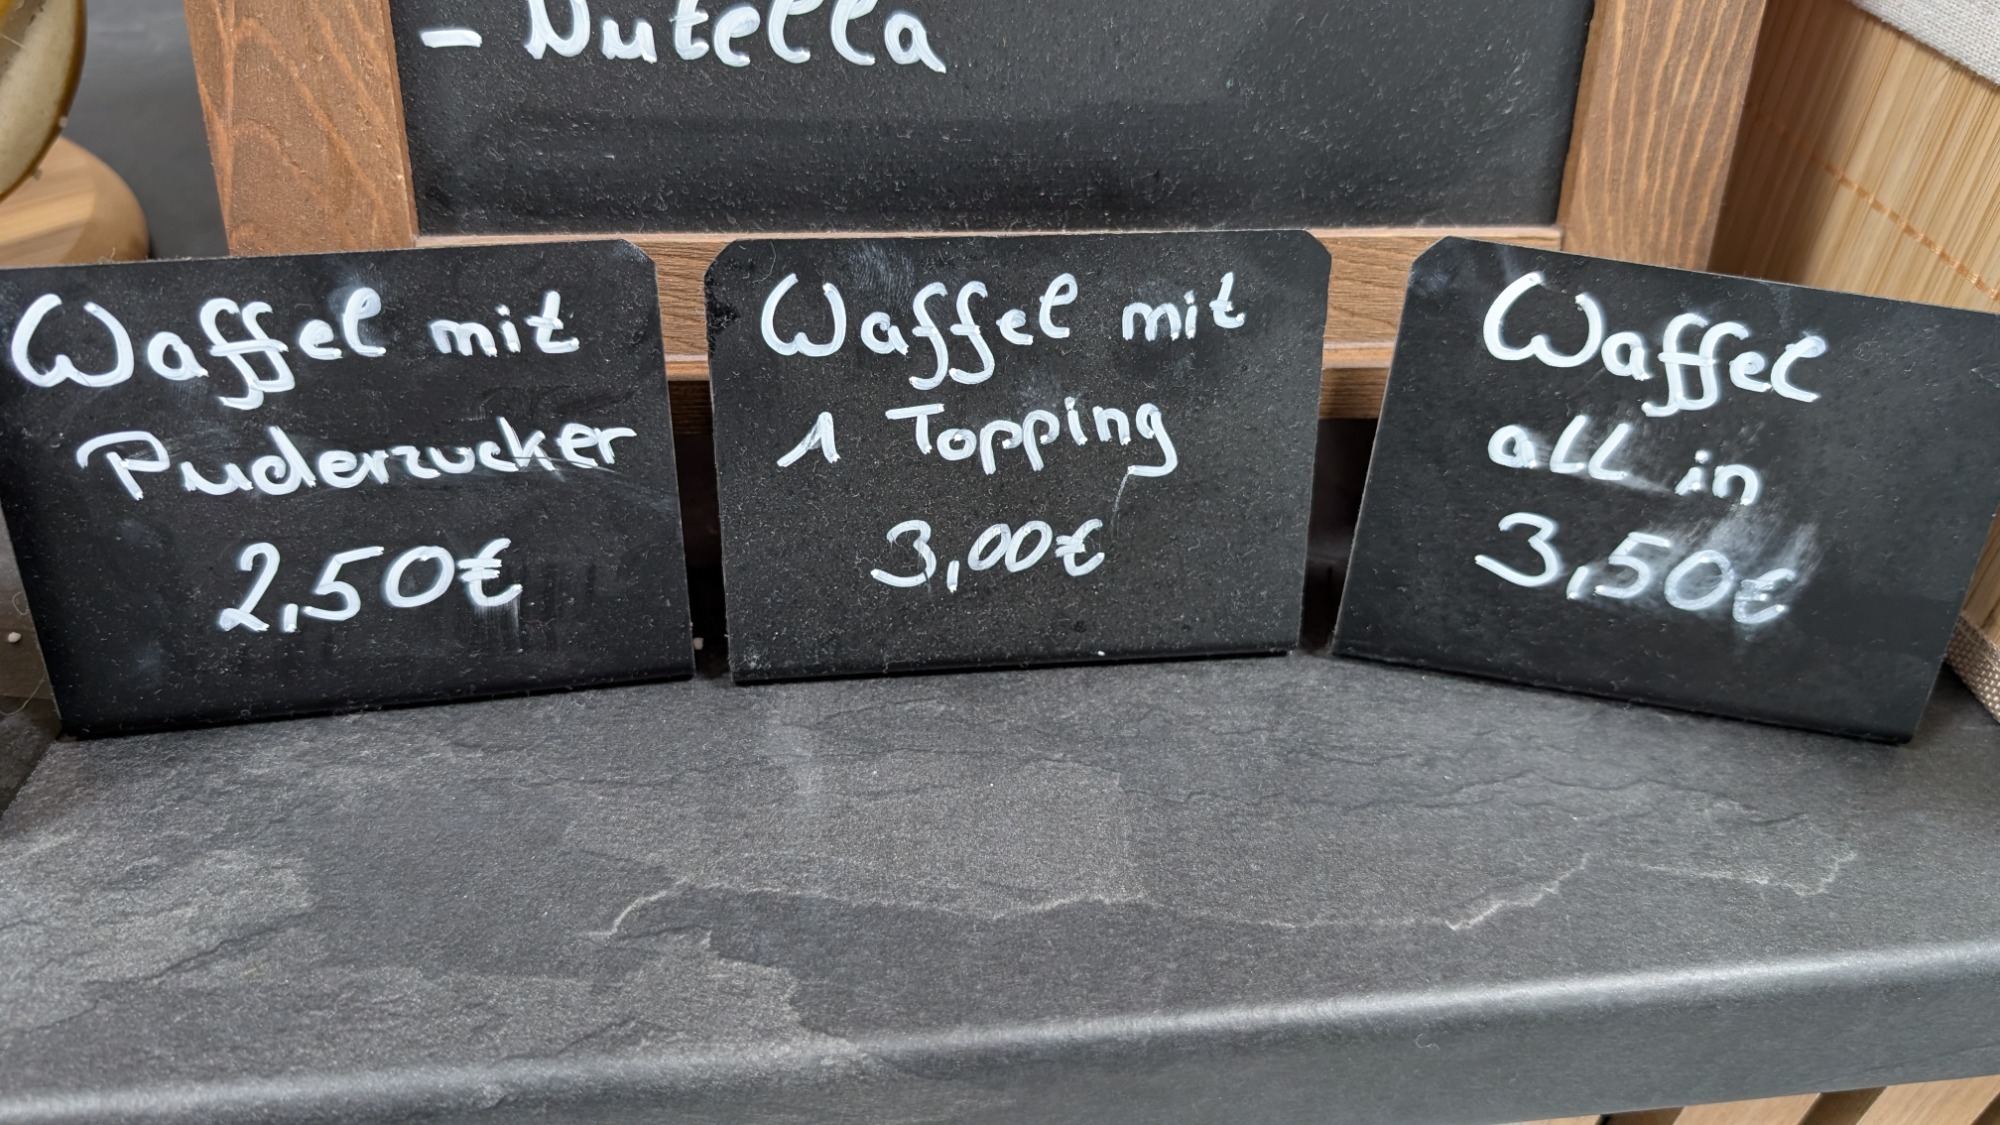 - Nutella
Waffel mit
Puderzucker
2,50€
Waffel mit
1 Topping
3,00€
Waffel
all in
3,50€